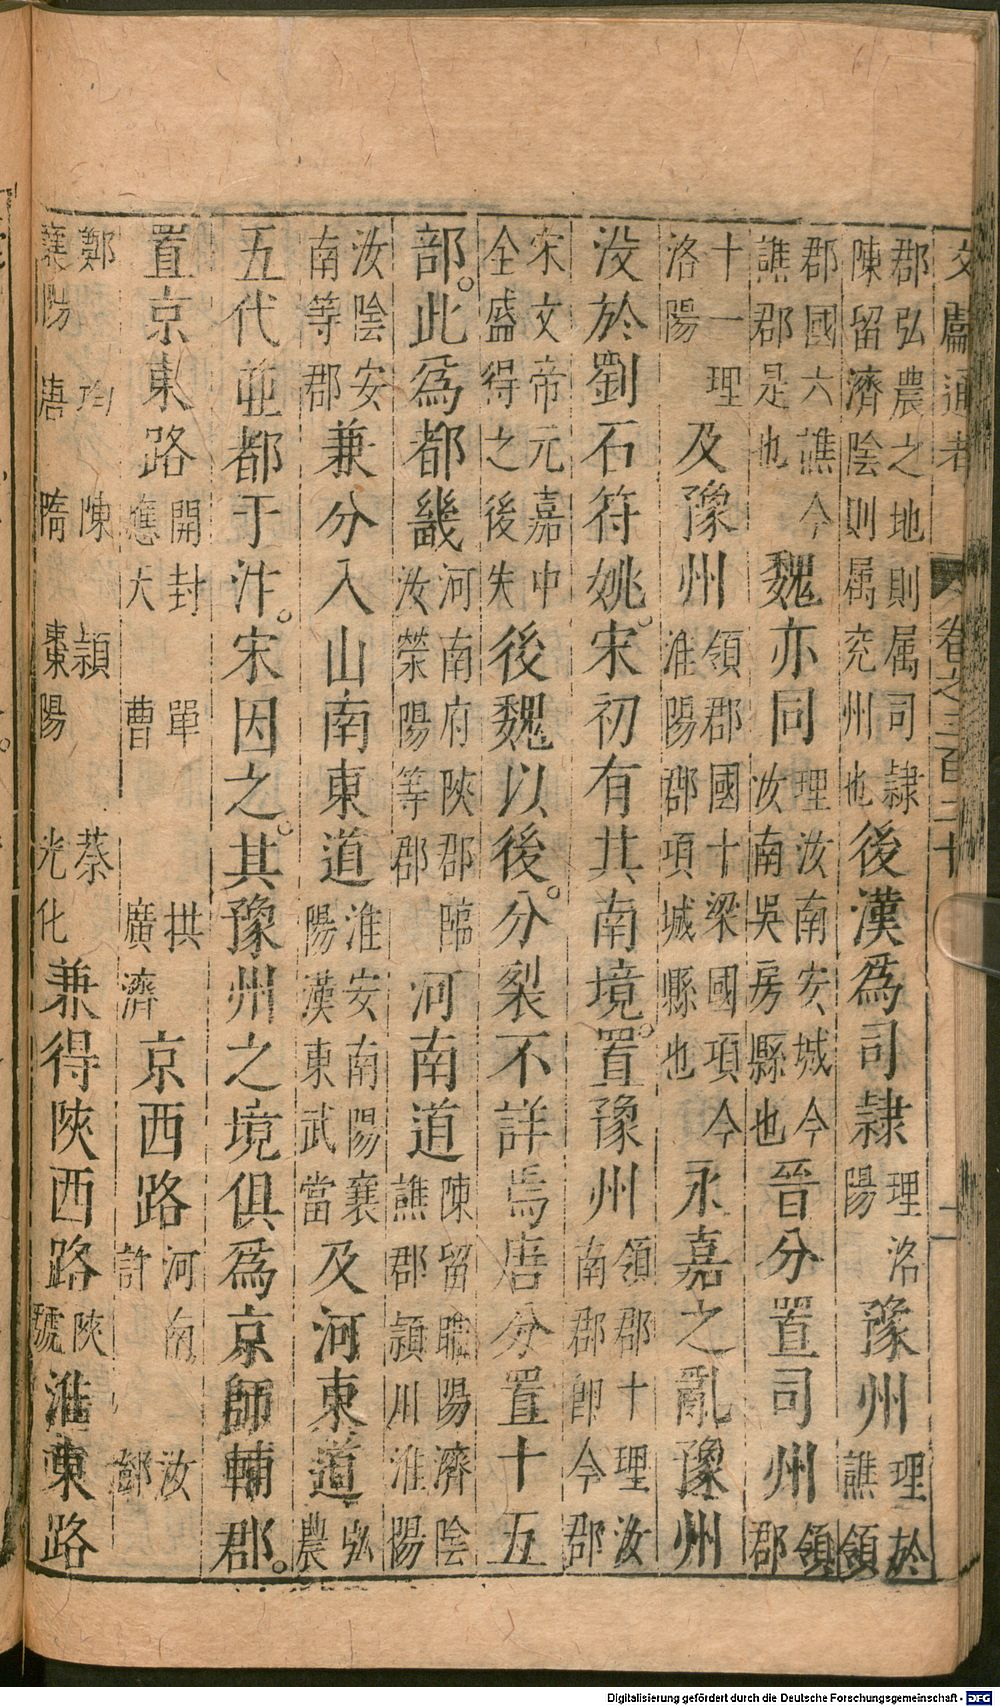 文獻通考 卷之三百二十 二
郡弘農之地則属司隸陳留濟陰則属兖州也後漢爲司隸理洛陽豫州理於譙領
郡國六譙今譙郡是也魏亦同理汝南安城今汝南吳房縣也晉分置司州領郡
十一理洛陽及豫州領郡國十梁國項今淮陽郡項城縣也永嘉之亂豫州
没於劉石符姚宋初有其南境置豫州領郡十理汝南郡即今郡
宋文帝元嘉中全盛得之後失後魏以後分裂不詳焉唐分置十五
部此爲都畿河南府陝郡臨汝滎陽等郡河南道陳留睢陽濟陰譙郡潁川淮陽
汝陰安南等郡兼分入山南東道淮安南陽襄陽漢東武當及河東道弘農
五代並都于汴宋因之其豫州之境俱爲京師輔郡
置京東路開封應天單曹拱廣濟京西路河南許汝鄭
鄭均陳潁蔡襄陽唐隋棗陽光化兼得陝西路陝虢淮東路
Digitalisierung gefördert durch die Deutsche Forschungsgemeinschaft - DFG